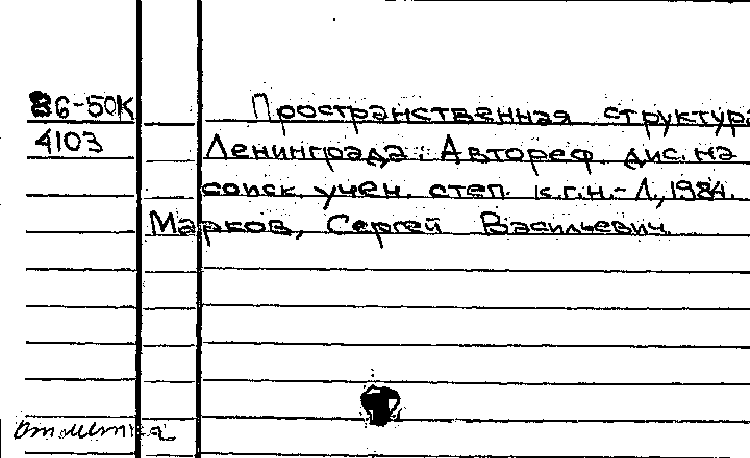 86-50К Пространственная структура
4103 Ленинграда: Автореф. дис. на
соиск. учен. степ. к.г.н.- Л., 1984.
Марков, Сергей Васильевич
отметка